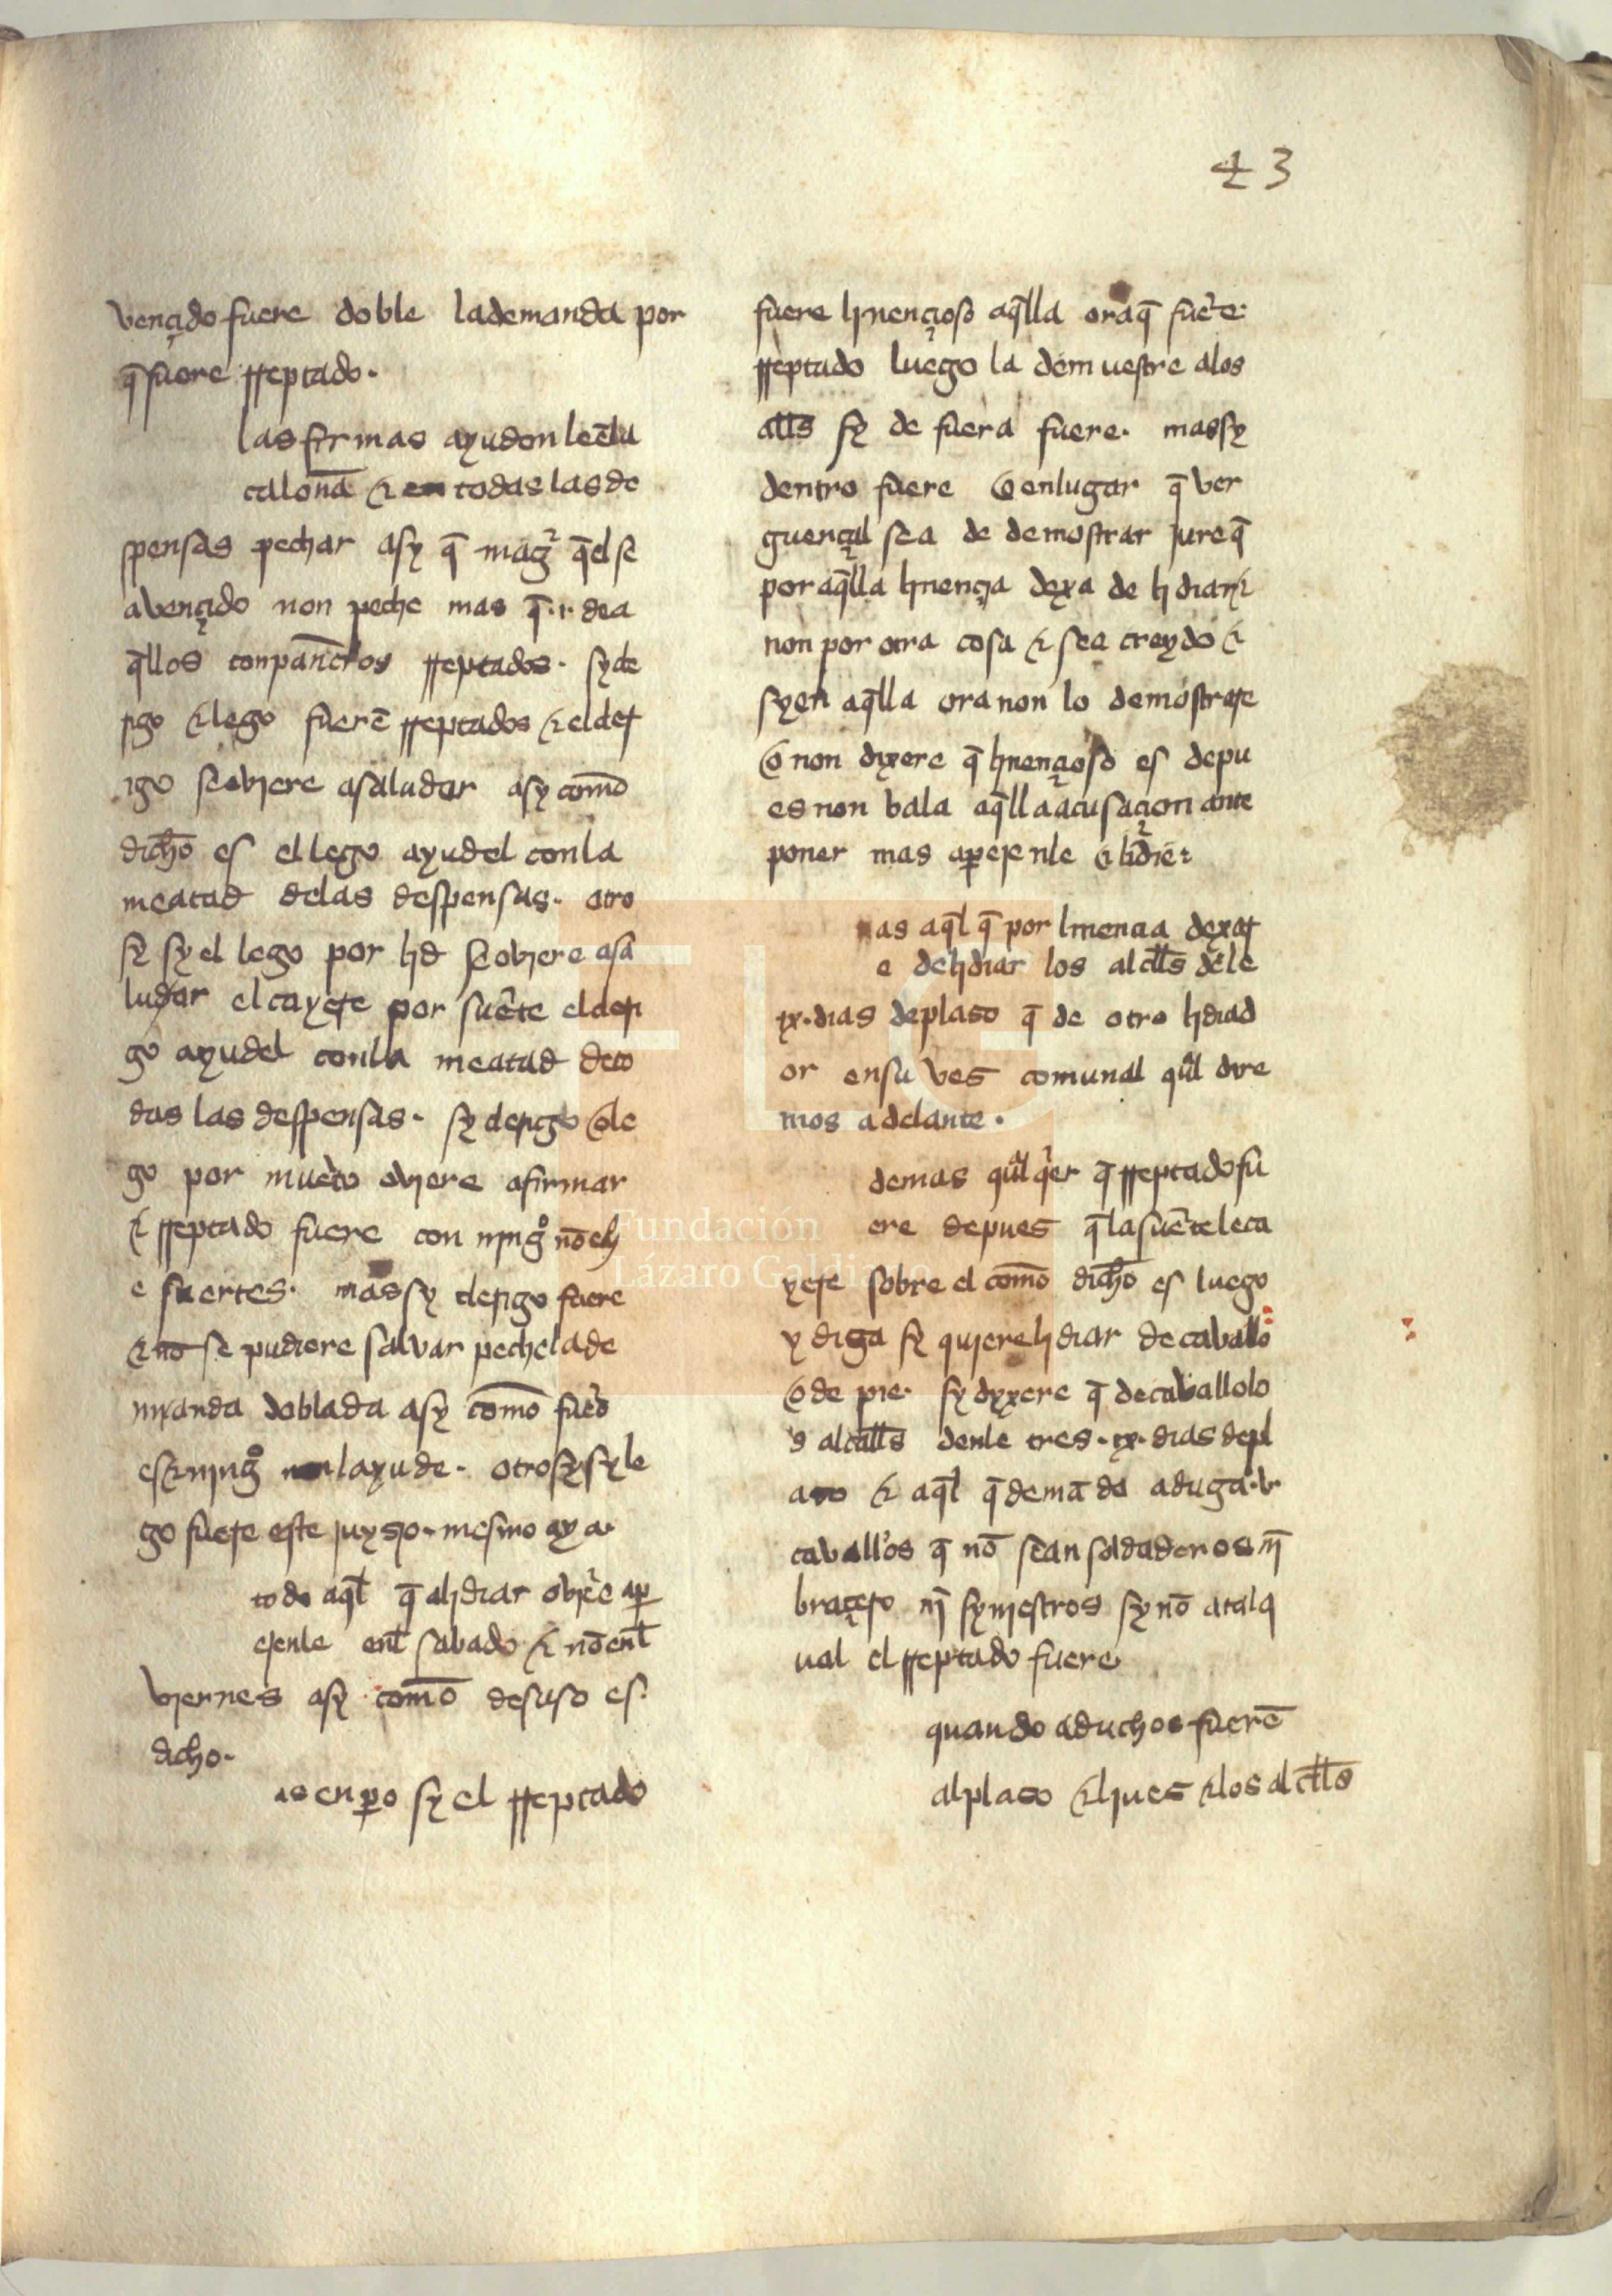 43
vençido fuere doble la demanda por
q̄ fuere rreptado.
las firmas ayudenle ēla
calonā & en todas las de
spensas pechar asy q̄ mag̊ q̄el se
a vençido non peche mas q̄ .i. de a
q̄llos conpan̄eros rreptados. sy cle
rigo & lego fuerē rreptados & el cler
igo se oviere a saludar asy com̄o
dicħo es el lego ayudel con la
meatad delas despensas. otro
sy sy el lego por lid se oviere a sa
ludar e l cayere por sue᷑te el cleri
go ayudel con la meatad de to
das las despensas. sy clerigo o le
go por mue᷑to oviere a firmar
& rreptado fuere con ning̊ nō ech
e suertes. mas sy clerigo fuere
& nō se pudiere salvar peche la de
manda doblada asy com̄o fue᷑o
es & ning̊ non l ayude. otro sy sy le
go fuere este juyzio mesmo aya.
todo aq̄l q̄ a lidiar ovie᷑e ap̲
ejenle enl̄ sabado & nō enl̄
viernes asy com̄o de suso es
dicho.
as enp̲o sy el rreptado
fuere lijnençioso aq̄lla ora q̄ fue᷑e
rreptado luego la demuestre a los
alls̄ sy de fuera fuere. mas sy
dentro fuere o en lugar q̄ ver
guençal sea de demostrar jure q̄
por aq̄lla lijnençia dexa de lidiar &
non por otra cosa & sea creydo &
sy en aq̄lla ora non lo demostrare
o non dixere q̄ lijnençioso es depu
es non vala aq̄lla acusaçion ante
poner mas ap̲ejenle & lidie᷑
as aq̄l q̄ por lijnençia dexar
e de lidiar los alcll̄s dēle
ix. dias de plaso q̄ de otro lidiad
or en su ves comunal qual dire
mos adelante.
demas qual q̄er q̄ rreptado fu
ere depues q̄ la sue᷑te le ca
yere sobre el com̄o dicħo es luego
y diga sy quiere lidiar de cavallo
o de pie. sy dyxere q̄ de cavallo lo
s alcall̄s denle tres .ix. dias de pl
aso & aq̄l q̄ demāda aduga .v.
cavall'os q̄ nō sean soldaderos nj̄
braçero nj̄ synjestros sy nō a tal q
ual el rreptado fuere
quando aduchos fuerē
al plaso & lijues & los alcll̄s
Fundación
Lázaro Galdiano
FLG